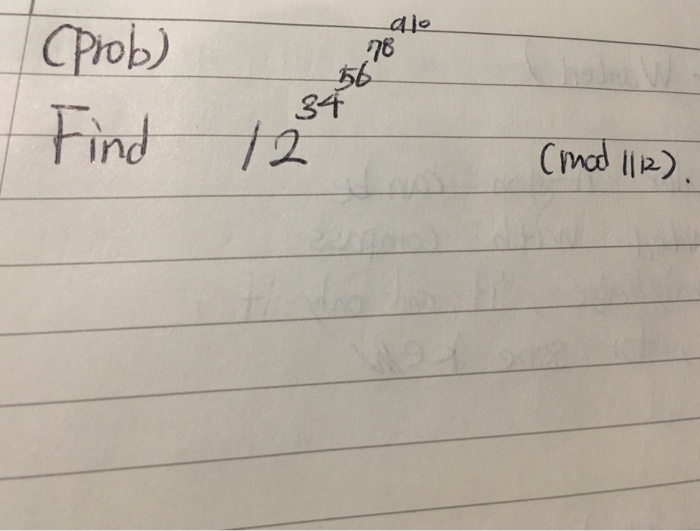 (Prob)
Find 12^34^56^78^910 (mod 1112).